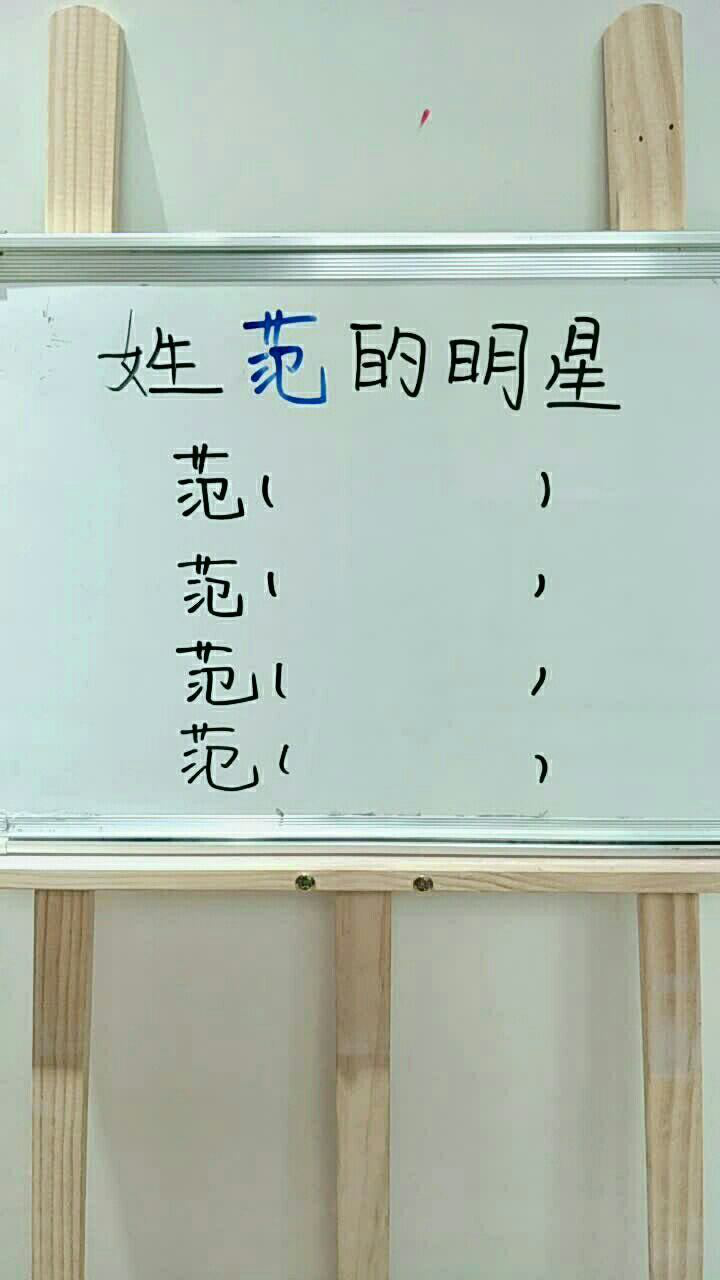 姓范的明星
范( )
范( )
范( )
范( )